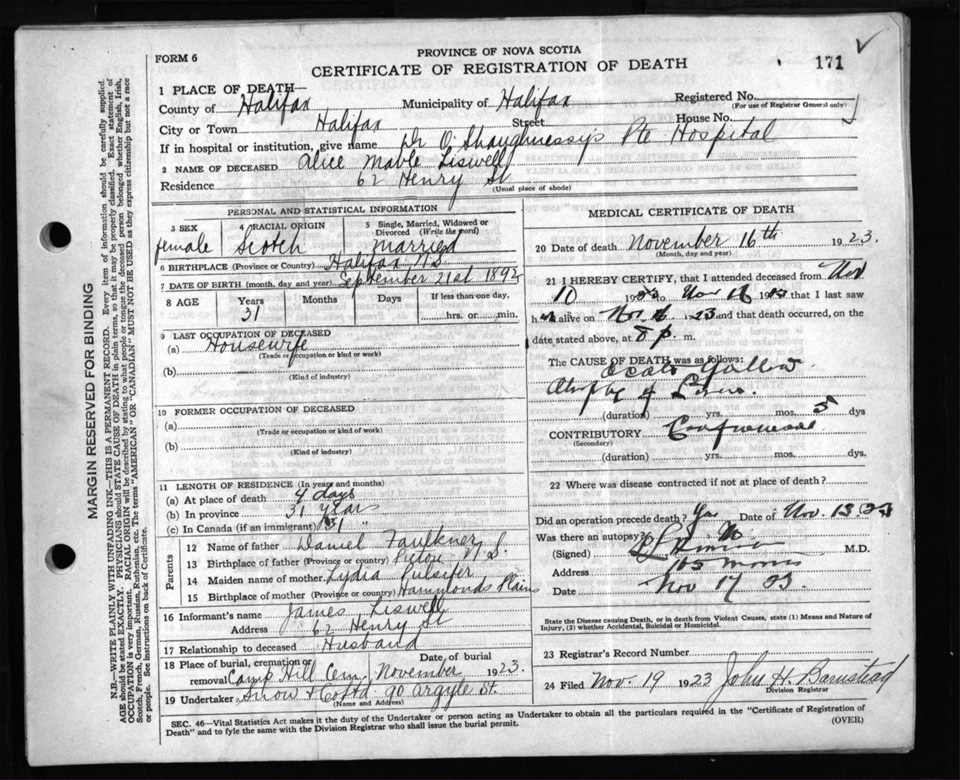 FORM 6
PROVINCE OF NOVA SCOTIA
CERTIFICATE OF REGISTRATION OF DEATH
171
1 PLACE OF DEATH—
County of Halifax Municipality of Halifax Registered No.
(For use of Registrar General only)
City or Town Halifax Street House No.
If in hospital or institution, give name Dr O'Shaughnessys Pte Hospital
2 NAME OF DECEASED Alice Mable Liswell
Residence 62 Henry St
(Usual place of abode)
PERSONAL AND STATISTICAL INFORMATION
3 SEX 4 RACIAL ORIGIN 5 Single, Married, Widowed or
Divorced (Write the word)
female Scotch married
6 BIRTHPLACE (Province or Country) Halifax N.S.
7 DATE OF BIRTH (month, day and year) September 21st 1892
8 AGE Years Months Days If less than one day,
31 hrs. or min.
9 LAST OCCUPATION OF DECEASED
(a) Housewife
(Trade or occupation or kind or work)
(b)
(Kind of industry)
10 FORMER OCCUPATION OF DECEASED
(a)
(Trade or occupation or kind of work)
(b)
(Kind of industry)
11 LENGTH OF RESIDENCE (In years and months)
(a) At place of death 4 days
(b) In province 31 years
(c) In Canada (if an immigrant) 31 "
Parents
12 Name of father Daniel Faulkner
13 Birthplace of father (Province or country) Pictou N.S.
14 Maiden name of mother Lydia Pulsifer
15 Birthplace of mother (Province or country) Hammonds Plains
16 Informant's name James Liswell
Address 62 Henry St
17 Relationship to deceased Husband
18 Place of burial, cremation or Date of burial
removal Camp Hill Cem November 1923
19 Undertaker Snow & Co Ltd 90 Argyle St.
(Name and Address)
MEDICAL CERTIFICATE OF DEATH
20 Date of death November 16th 1923.
(Month, day and year)
21 I HEREBY CERTIFY, that I attended deceased from Nov
10 1923 to Nov 16 19 that I last saw
h alive on Nov 16 1923 and that death occurred, on the
date stated above, at 8 p. m.
The CAUSE OF DEATH was as follows:
Acute Yellow
Atrophy of Liver.
(duration) yrs. mos. 5 dys
CONTRIBUTORY
(Secondary)
(duration) yrs. mos. dys.
22 Where was disease contracted if not at place of death?
Did an operation precede death? Yes Date of Nov. 13. 23
Was there an autopsy? No
(Signed) M.D.
Address 105 Morris
Date Nov 17 23.
State the Disease causing Death, or in death from Violent Causes, state (1) Means and Nature
of Injury, (2) whether Accidental, Suicidal or Homicidal.
23 Registrar's Record Number
24 Filed Nov. 19 1923 John H. Barnstead
Division Registrar
SEC. 46—Vital Statistics Act makes it the duty of the Undertaker or person acting as Undertaker to obtain all the particulars required in the "Certificate of Registration of
Death" and to fyle the same with the Division Registrar who shall issue the burial permit.
(OVER)
MARGIN RESERVED FOR BINDING
N.B.—WRITE PLAINLY WITH UNFADING INK—THIS IS A PERMANENT RECORD. Every item of information should be carefully supplied.
AGE should be stated EXACTLY. PHYSICIANS should STATE CAUSE OF DEATH in plain terms, so that it may be properly classified. Exact statement of
OCCUPATION is very important. RACIAL ORIGIN will be described by stating to what people or tongue the deceased person belonged whether English, Irish,
Scotch, French, German, Russian, Ruthenian, etc. The terms "AMERICAN" OR "CANADIAN" MUST NOT BE USED as they express citizenship but not a race
or people. See instructions on back of Certificate.